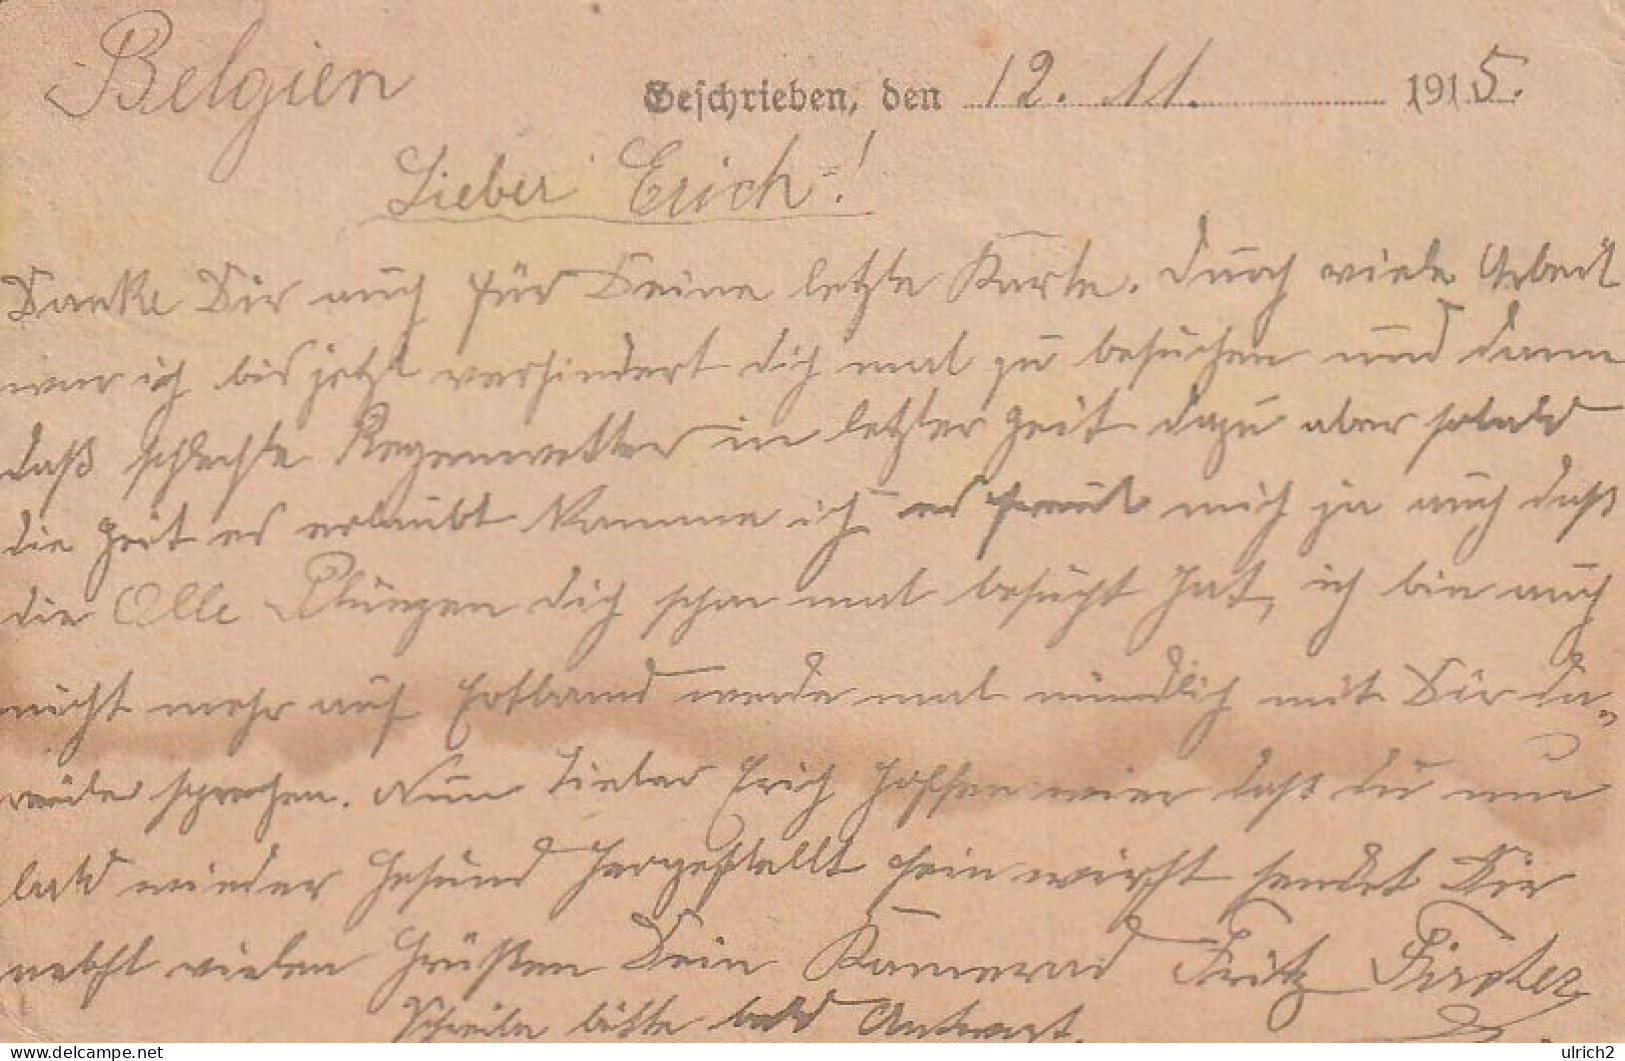 Belgien
Geschrieben, den 12. 11. 1915.
Lieber Erich!
Danke Dir auch für Deine letzte Karte. Durch viele Arbeit
war ich bis jetzt verhindert dich mal zu besuchen und dann
daß schlechte Regenwetter in letzter Zeit dazu aber sobald
die Zeit es erlaubt komme ich es freut mich ja auch daß
die Olle dich schon mal besucht hat, ich bin auch
nicht mehr auf werde mal mündlich mit Dir da„
rüber sprechen. Nun lieber Erich hoffen wier daß du nun
bald wieder Gesund hergestellt sein wirst sendet Dir
nebst vielen Grüßen Dein Kamerad Fritz
Schreibe bitte bald Antwort.
www.delcampe.net
ulrich2